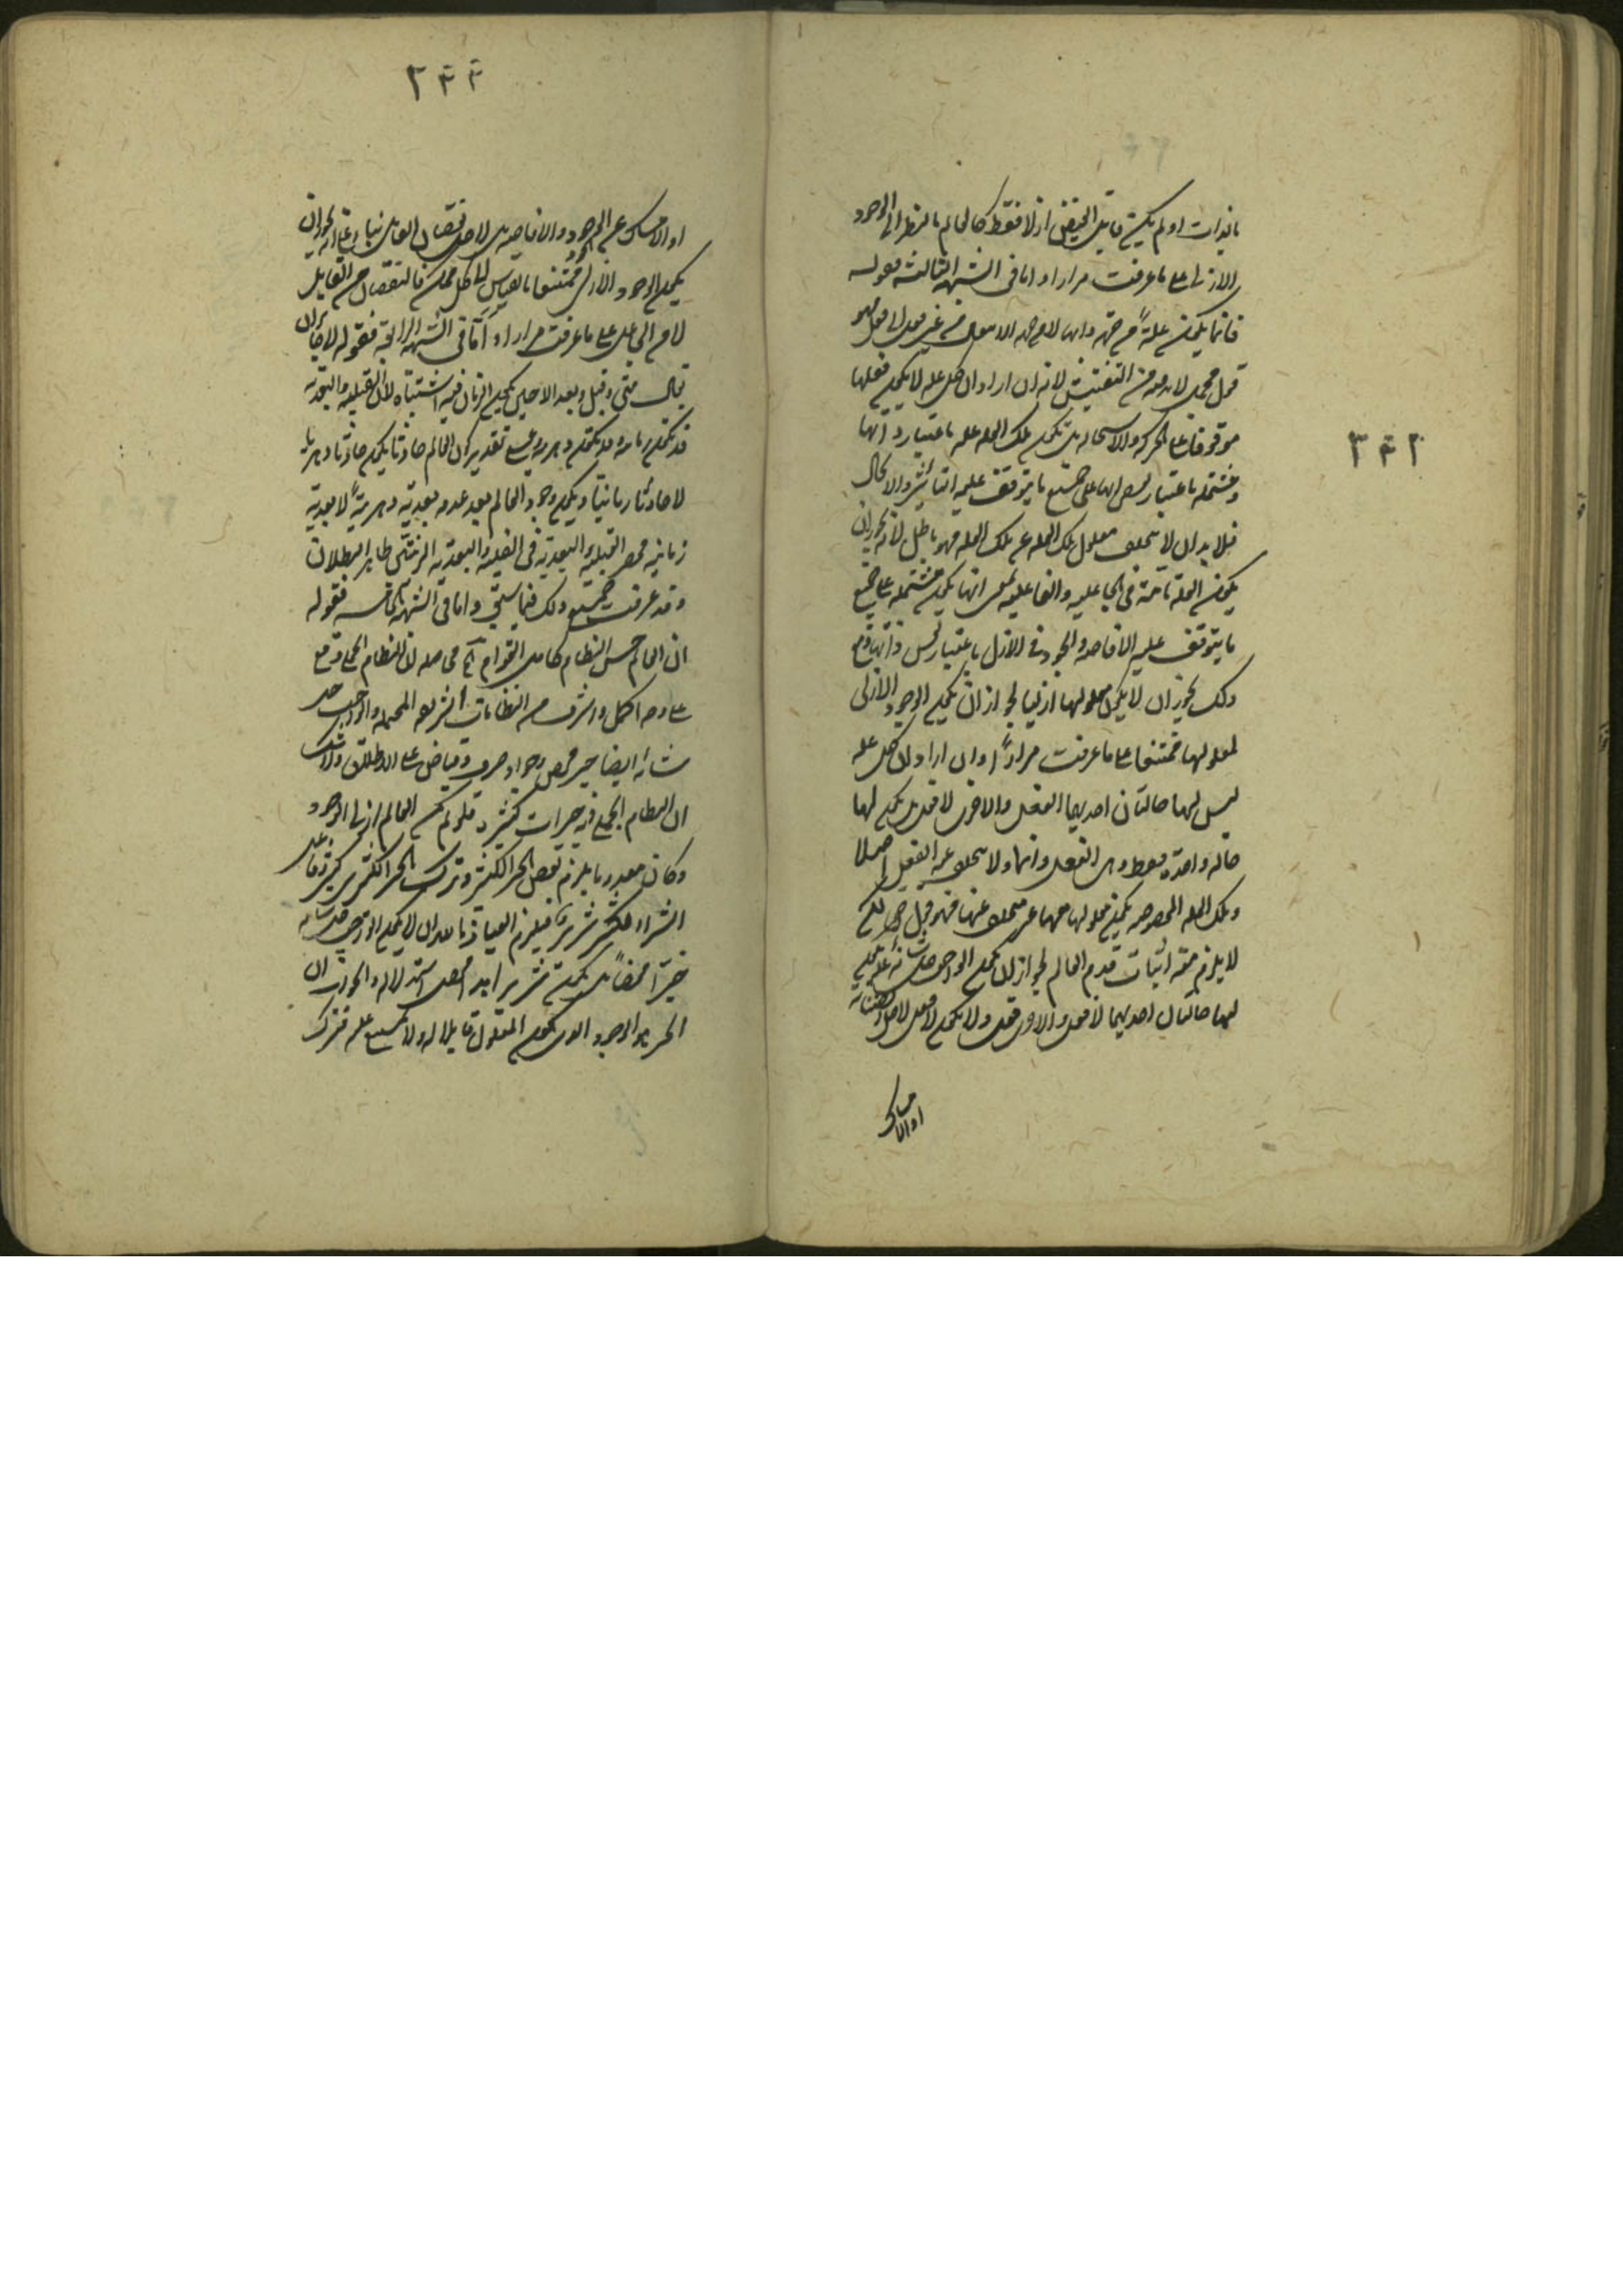 ٢٤٢
بالذات او لم يكن قابل الفيض ازلا فقط كالعالم بالنظر الى الوجود
الازلي على ما عرفت مرارا و اما في الشبهة الثالثة فقوله
فانما يكون علة من جهة
قول مجمل لابد من التفتيش لانه ان اراد ان كل علة لا يكون فعلها
موقوفا على الحركة والاستحالة بل تكون تلك العلة علة باعتبار ذاتها
ومشتملة باعتبار على جميع ما يتوقف عليه التأثير والايجاد
فلابد ان لا يتخلف معلول تلك العلة عن تلك العلة فهو باطل لانه يجوز ان
يكون العلة تامة في الجاعلية والفاعلية بمعنى انها تكون مشتملة على جميع
ما يتوقف عليه الافاضة والجود في الازل باعتبار نفس ذاتها ومع
ذلك يجوز ان لا يكون معلولها ازليا لجواز ان يكون الوجود الازلي
لمعلولها ممتنعا على ما عرفت مرارا وان اراد ان كل علة
ليس لها حالتان احديهما الفعل والاخرى لا فعل بل يكون لها
حالة واحدة فقط وهي الفعل دائما ولا يتخلف عن الفعل اصلا
وتلك العلة المخصوصة يكون معلولها معها غير متخلف عنها فهو قول حق لكن
لا يلزم منه اثبات قدم العالم لجواز ان يكون الواجب جل شأنه علة يكون
لها حالتان احديهما لا فعل والاخرى فعل ولا يكون لا فعل لاجل
او الامساك
٢٤٣
او الامساك عن الجود والافاضة بل لاجل نقصان القابل بناء على انه يجوز ان
يكون الوجود الازلي ممتنعا بالقياس الى كل ممكن فالنقصان من القابل
لا من الجاعل على ما عرفت مرارا و اما في الشبهة الرابعة فقوله لا يجوز ان
يقال متى وقبل وبعد الا حين يكون الزمان فيه اشتباه لان القبلية والبعدية
قد تكون زمانية وقد تكون دهرية وعلى تقدير ان العالم حادثا يكون حادثا دهريا
لا حادثا زمانيا ويكون وجود العالم بعد عدمه بعدية دهرية لا بعدية
زمانية فحصر القبلية والبعدية في القبلية والبعدية الزمانية ظاهر البطلان
وقد عرفت جميع ذلك فيما سبق و اما في الشبهة الخامسة فقوله
ان العالم حسن النظام كامل القوام آه حاصله ان النظام الجملي وقع
على وجه اكمل واشرف من النظامات الشريفة المحتملة والواجب جل
شأنه ايضا خير محض وجواد صرف وفياض على الاطلاق ولا شك
ان النظام الجملي فيه خيرات كثيرة فلو لم يكن العالم ازلي الوجود
وكان يلزم الخير الكثير وترك الخير الكثير
شر كثير فيلزم العياذ بالله ان لا يكون الواجب جل شأنه
خيرا محضا بل يكون شريرا استدلاله والجواب ان
الخير هو الوجود الذي يكون المعلول قابلا له ولا يمتنع عليه فترك